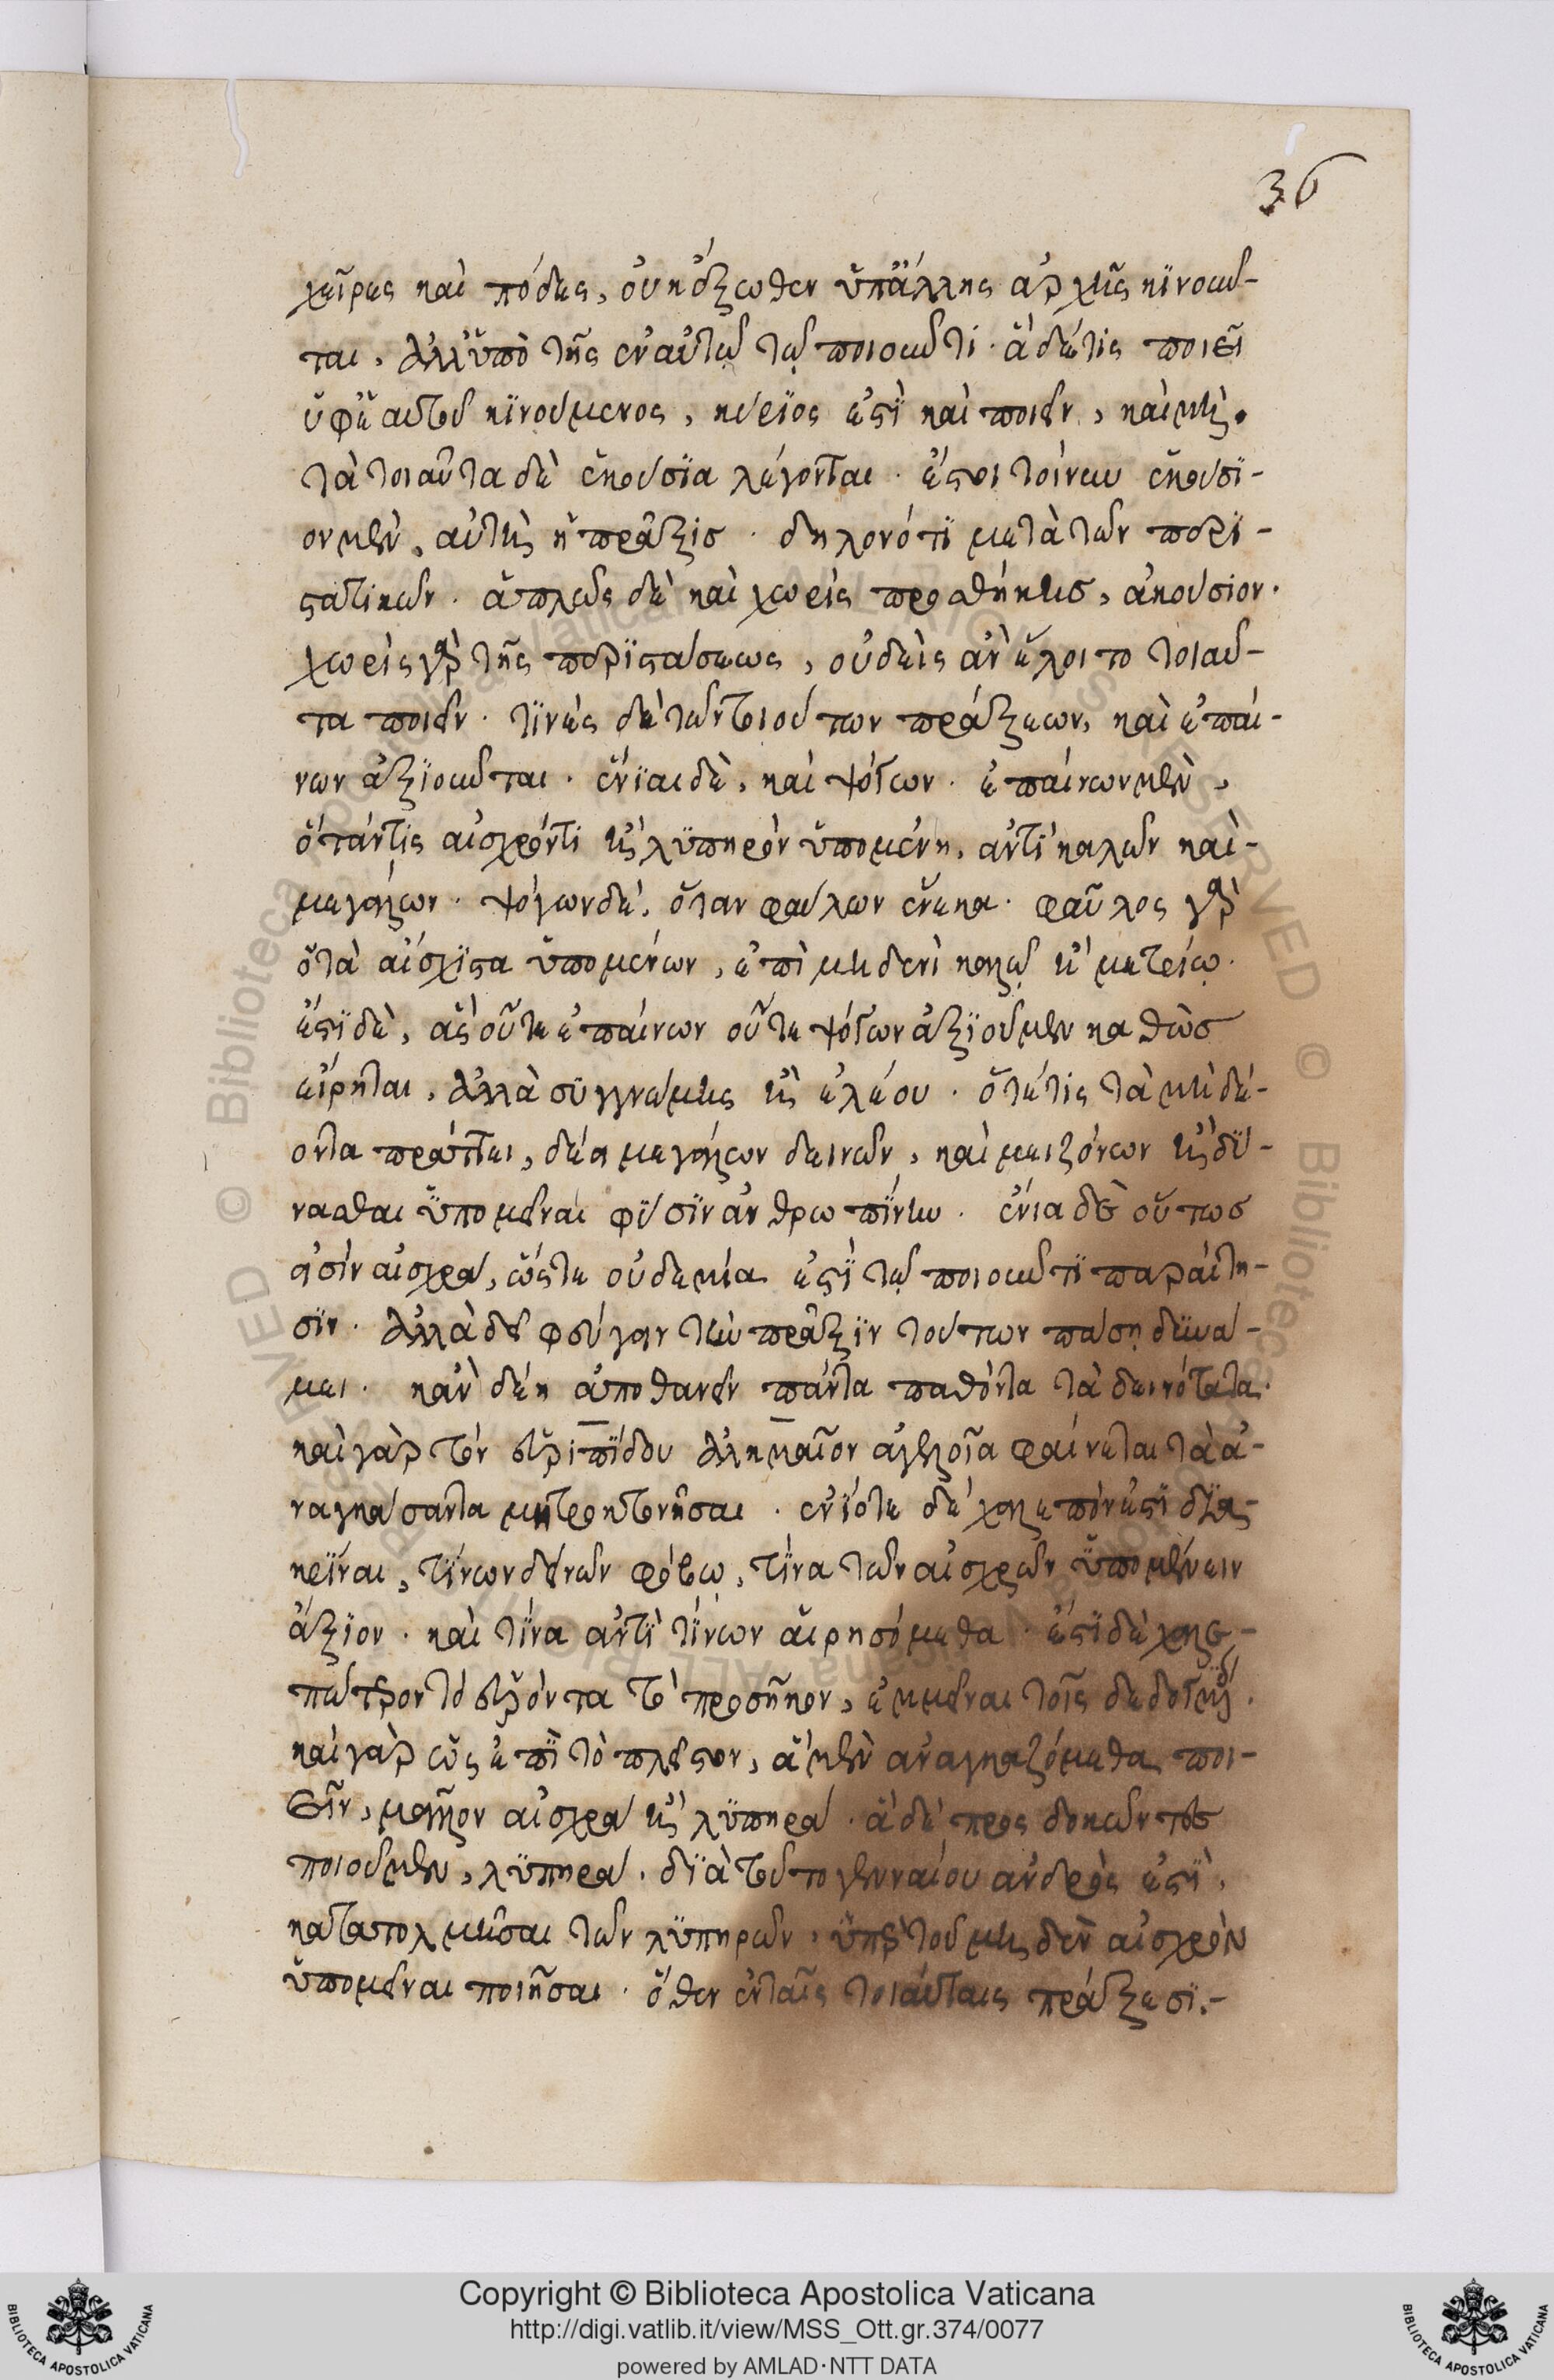 36
χεῖρες καὶ πόδες, οὐκ ἔξωθεν ὑπ' ἄλλης ἀρχῆς κινοῦν-
ται, ἀλλ' ὑπὸ τῆς ἐν αὐτῷ τῷ ποιοῦντι. ἃ δέ τις ποιεῖ
ὑφ' ἑαυτοῦ κινούμενος, κύριός ἐστι καὶ ποιεῖν, καὶ μή.
τὰ τοιαῦτα δὲ ἑκούσια λέγονται. ἔστι τοίνυν ἑκούσι-
ον μὲν, αὐτὴ ἡ πρᾶξις. δηλονότι μετὰ τῶν περι-
στατικῶν. ἁπλῶς δὲ καὶ χωρὶς προσθήκης, ἀκούσιον.
χωρὶς γὰρ τῆς περιστάσεως, οὐδεὶς ἂν ἕλοιτο τοιαῦ-
τα ποιεῖν. τινὲς δὲ τῶν τοιούτων πράξεων, καὶ ἐπαί-
νων ἀξιοῦνται. ἔνιαι δὲ, καὶ ψόγων. ἐπαίνων μὲν,
ὅταν τις αἰσχρόν τι ἢ λυπηρὸν ὑπομένῃ, ἀντὶ καλῶν καὶ
μεγάλων. ψόγων δὲ, ὅταν φαύλων ἕνεκα. φαῦλος γὰρ
ὁ τὰ αἴσχιστα ὑπομένων, ἐπὶ μηδενὶ καλῷ ἢ μετρίῳ.
ἔστι δὲ, ἃς οὔτε ἐπαίνων οὔτε ψόγων ἀξιοῦμεν καθὼς
εἴρηται, ἀλλὰ συγγνώμης ἢ ἐλέου. ὅτε τις τὰ μὴ δέ-
οντα πράττει, δέει μεγάλων δεινῶν, καὶ μειζόνων ἢ δύ-
νασθαι ὑπομεῖναι φύσιν ἀνθρωπίνην. ἔνια δὲ οὕτως
εἰσὶν αἰσχρά, ὥστε οὐδεμία ἐστὶ τῷ ποιοῦντι παραίτη-
σιν. ἀλλὰ δεῖ φεύγειν τὴν πρᾶξιν τούτων πάσῃ δυνά-
μει. κἂν δέῃ ἀποθανεῖν πάντα παθόντα τὰ δεινότατα.
καὶ γὰρ τὸν εὐριπίδου ἀλκμαῖον ἀγελοῖα φαίνεται τὰ ἀ-
ναγκάσαντα μητροκτονῆσαι. ἐνίοτε δὲ χαλεπόν ἐστι δια-
κρῖναι, τίνων δεινῶν φόβῳ, τίνα τῶν αἰσχρῶν ὑπομένειν
ἄξιον. καὶ τίνα ἀντὶ τίνων αἱρησόμεθα. ἔστι δὲ χαλε-
πώτερον τὸ εὑρόντα τὸ προσῆκον, ἐμμεῖναι τοῖς δεδογμένοις.
καὶ γὰρ ὡς ἐπὶ τὸ πλεῖστον, ἃ μὲν ἀναγκαζόμεθα ποι-
εῖν, μᾶλλον αἰσχρὰ ἢ λυπηρά. ἃ δὲ προσδοκῶντες
ποιοῦμεν, λυπηρά. διὰ τοῦτο γενναίου ἀνδρός ἐστι,
κατατολμῆσαι τῶν λυπηρῶν, ὑπὲρ τοῦ μηδὲν αἰσχρὸν
ὑπομεῖναι ποιῆσαι. ὅθεν ἐν ταῖς τοιαύταις πράξεσι.-
Copyright © Biblioteca Apostolica Vaticana
http://digi.vatlib.it/view/MSS_Ott.gr.374/0077
powered by AMLAD·NTT DATA